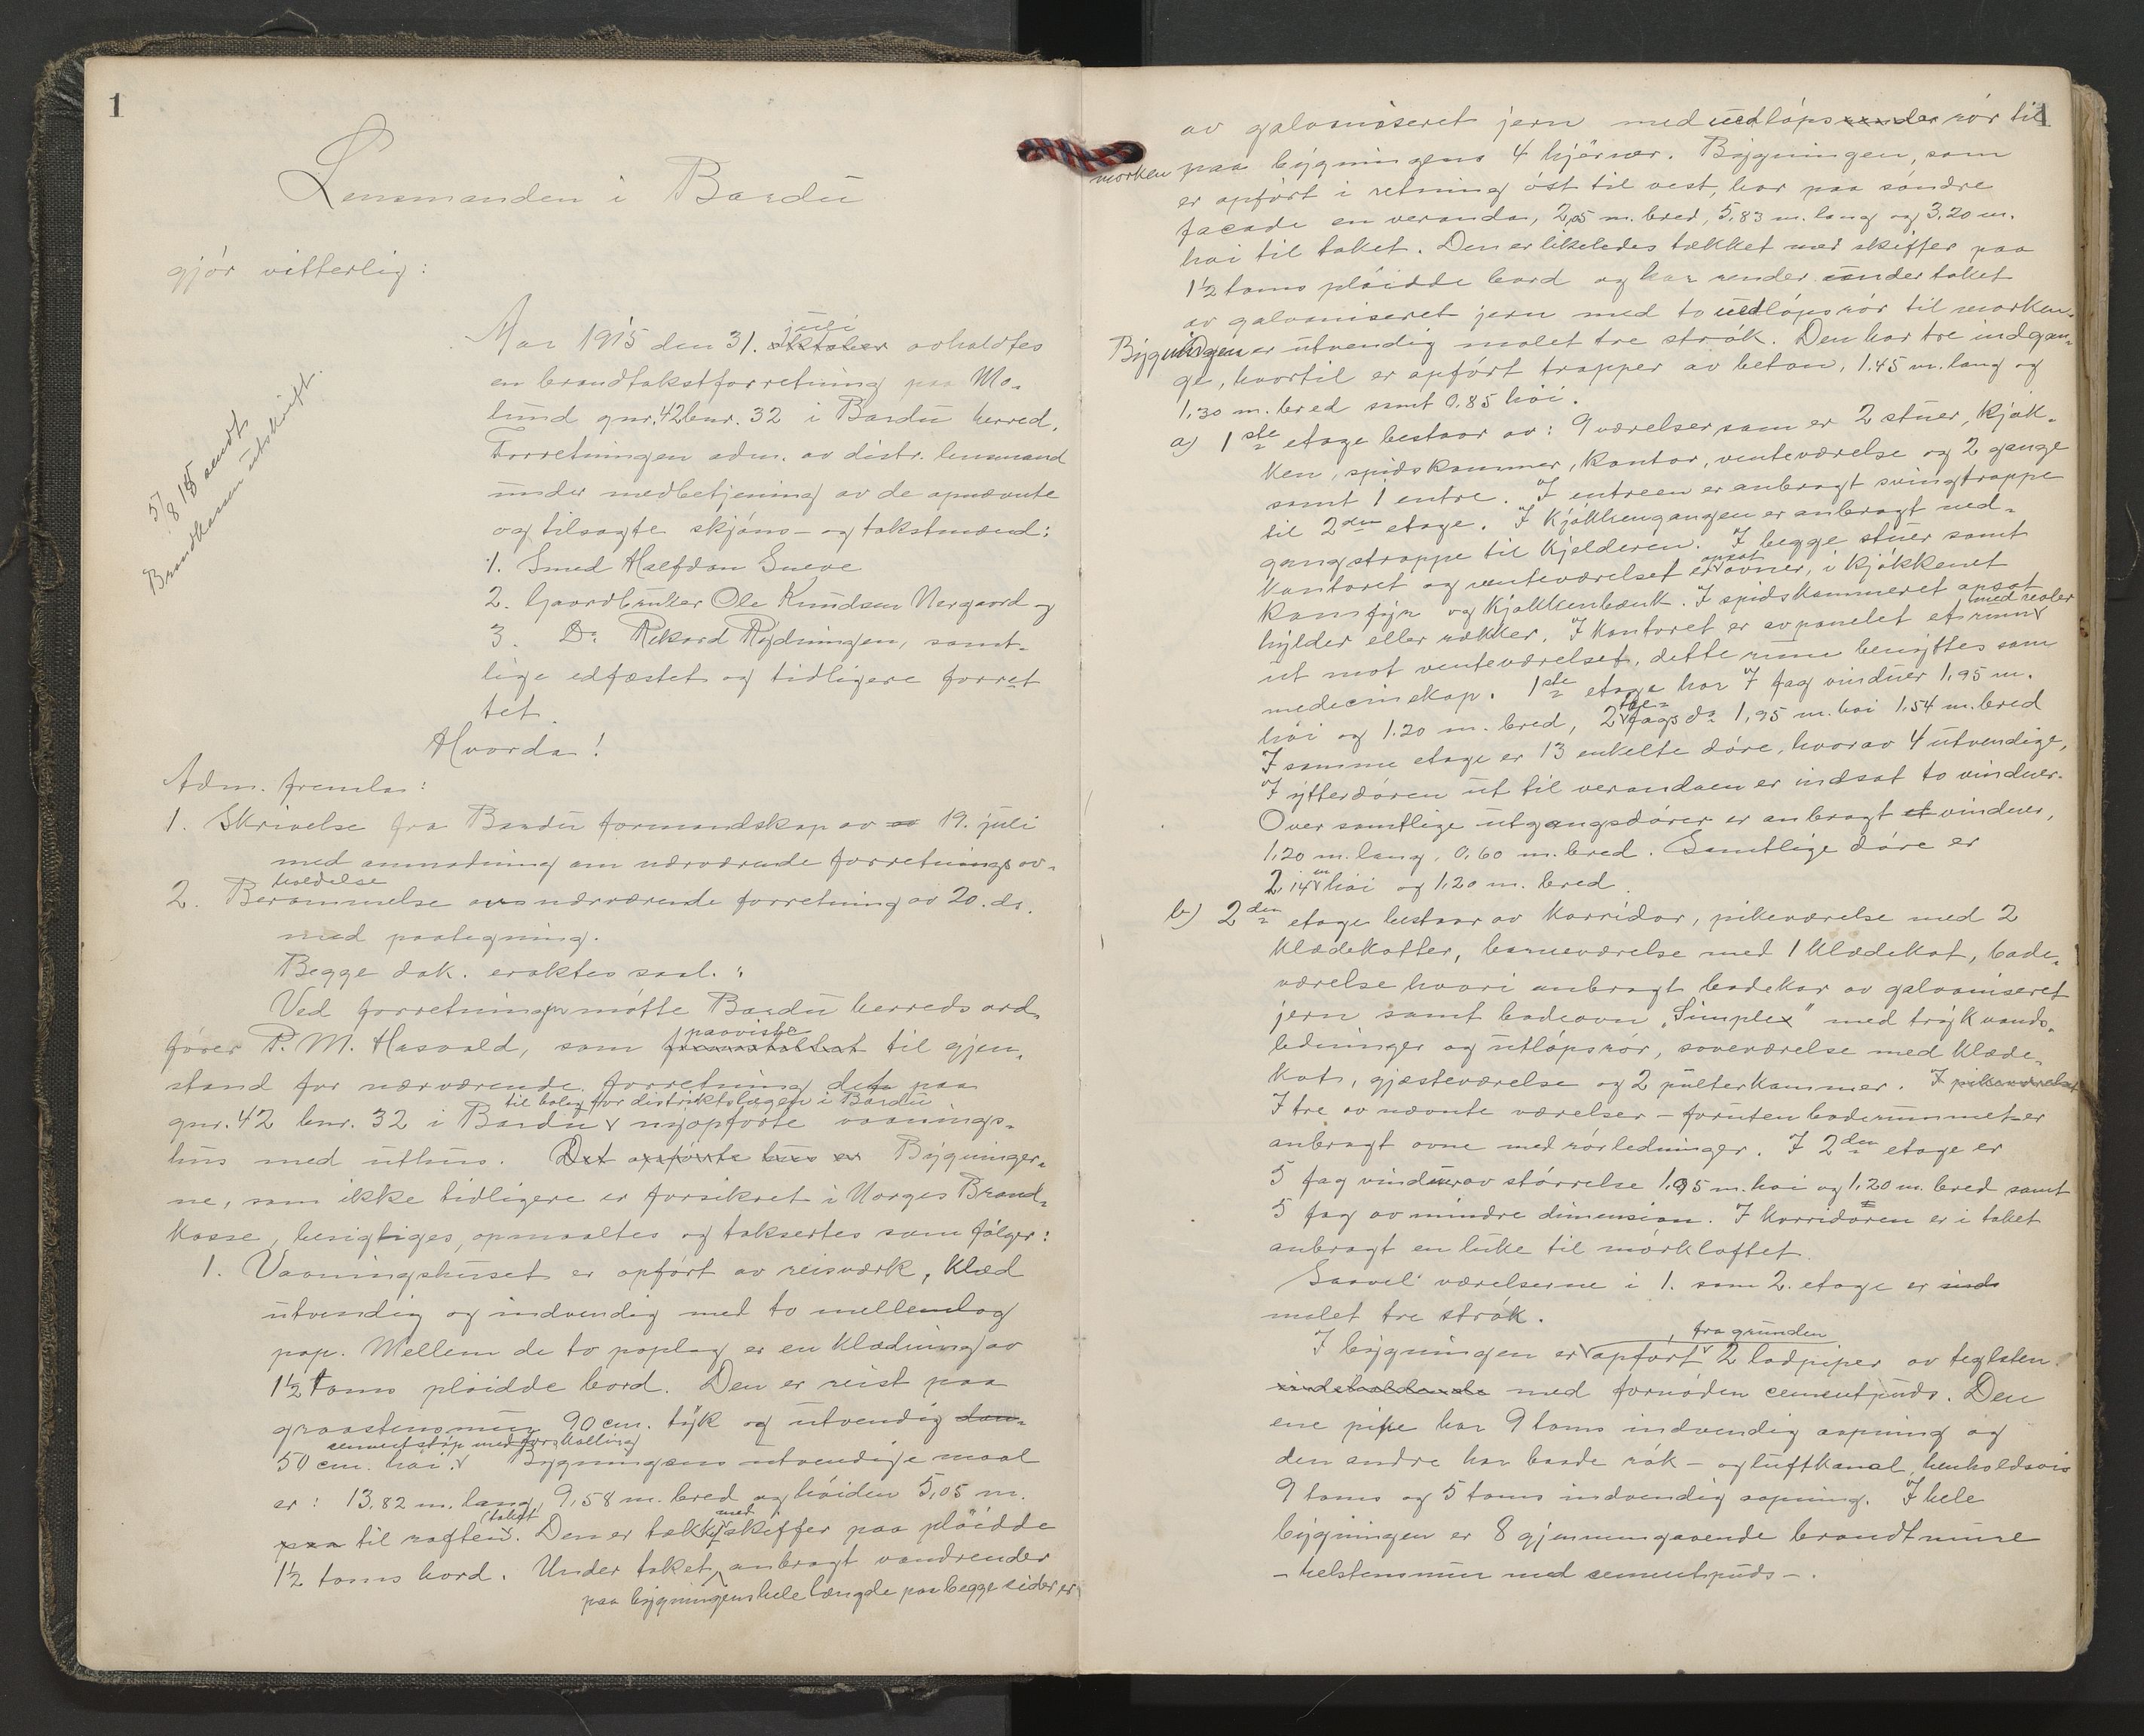 1
Lensmanden i Bardu
gjör vitterlig:
Aar 1915 den 31. juli oktober avholdtes
en brandtakstforretning paa Mo-
lund gnr. 42 bnr. 32 i Bardu herred.
Forretningen adm. av distr. lensmand
under medbetjening av de opnævnte
og tilsagte skjöns- og takstmænd:
1. Smed Halfdan Sneve
2. Gaardbruker Ole Knudsen Nergaard og
3. Do. Rikard Rydningen, samt-
lige edfæstet og tidligere forret
tet.
5/8 15 sendt
Brandkassen utskrift.
Hvorda!
Adm. fremla:
1. Skrivelse fra Bardu formandskap av 19. juli
med anmodning om nærværende forretnings av-
holdelse
2. Berammelse av nærværende forretning av 20. ds.
med paategning.
Begge dok. eraktes saal.:
Ved forretningen mötte Bardu herreds ord-
förer P. M. Hasvold, som paaviste til gjen-
stand for nærværende forretning det paa
til bolig for distriktslægen i Bardu
gnr. 42 bnr. 32 i Bardu nyopförte vaanings-
hus med uthus. Det opförte hus er Bygninger-
ne, som ikke tidligere er forsikret i Norges Brand-
kasse, besigtiges, opmaaltes og taksertes som fölger:
1. Vaaningshuset er opfört av reisværk, klæd
utvendig og indvendig med to mellemlag
pap. Mellem de to paplag er en klædning av
1½ toms plöidde bord. Den er reist paa
graastensmur 90 cm. tyk og utvendig
cementstöp med forskalling
50 cm. höi. Bygningens utvendige maal
er: 13,82 m. lang, 9,58 m. bred og höiden 5,05 m.
paa til raften (taket). Den er tækket med skiffer paa plöidde
1½ toms bord. Under taket anbragt vandrender
paa bygningens hele længde paa begge sider er
1
av galvaniseret jern med utlöps render rör til
marken paa bygningens 4 hjörner. Bygningen, som
er opfört i retning öst til vest, har paa söndre
facade en veranda, 2,05 m. bred, 5,83 m. lang og 3,20 m.
höi til taket. Den er likeledes tækket med skiffer paa
1½ toms plöidde bord og har render under taket
av galvaniseret jern med to utlöpsrör til marken.
Bygningen er utvendig malet tre strök. Den har tre indgan-
ge, hvortil er opfört trapper av beton, 1.45 m. lang og
1,30 m. bred samt 0.85 höi.
a) 1ste etage bestaar av: 9 værelser som er 2 stuer, kjök-
ken, spidskammer, kontor, venteværelse og 2 gange
samt 1 entre. I entreen er anbragt svingtrappe
til 2den etage. I kjökkengangen er anbragt ned-
gangstrappe til kjelderen. I begge stuer samt
kontoret og venteværelset er opsat ovner, i kjökkenet
komfyr og kjökkenbænk. I spidskammeret opsat
hylder eller rækker. I kontoret er avpanelet et rum med reoler
ut mot venteværelset, dette rum benyttes som
medecinskap. 1ste etage har 7 fag vinduer 1,95 m.
höi og 1.20 m. bred, 2 tre-fags do 1,95 m. höi 1.54 m. bred
I samme etage er 13 enkelte döre, hvorav 4 utvendige,
I ytterdören ut til verandaen er indsat to vinduer.
Over samtlige utgangsdörer er anbragt et vinduer,
1,20 m. lang, 0,60 m. bred. Samtlige döre er
2,14 m höi og 1,20 m. bred.
b) 2den etage bestaar av korridor, pikeværelse med 2
klædekotter, barneværelse med 1 klædekot, bade-
værelse hvori anbragt badekar av galvaniseret
jern samt badeovn "Simplex" med trykvands-
ledninger og utlöpsrör, soveværelse med klæde-
kot, gjæsteværelse og 2 pulterkammer. I pikeværelset
I tre av nævnte værelser - foruten baderummet er
anbragt ovne med rörledninger. I 2den etage er
5 fag vinduer av störrelse 1,95 m. höi og 1,20 m. bred samt
5 fag av mindre dimension. I korridoren er i taket
anbragt en luke til mörkloftet.
Saavel værelserne i 1. som 2. etage er inds
malet tre strök.
I bygningen er opfört, fra grunden 2 lodpiper av teglsten
indeholdende med fornöden cementpuds. Den
ene pipe har 9 toms indvendig aapning og
den andre har baade rök- og luftkanal, henholdsvis
9 toms og 5 toms indvendig aapning. I hele
bygningen er 8 gjennemgaaende brandtmure
- helstensmur med cementpuds -.